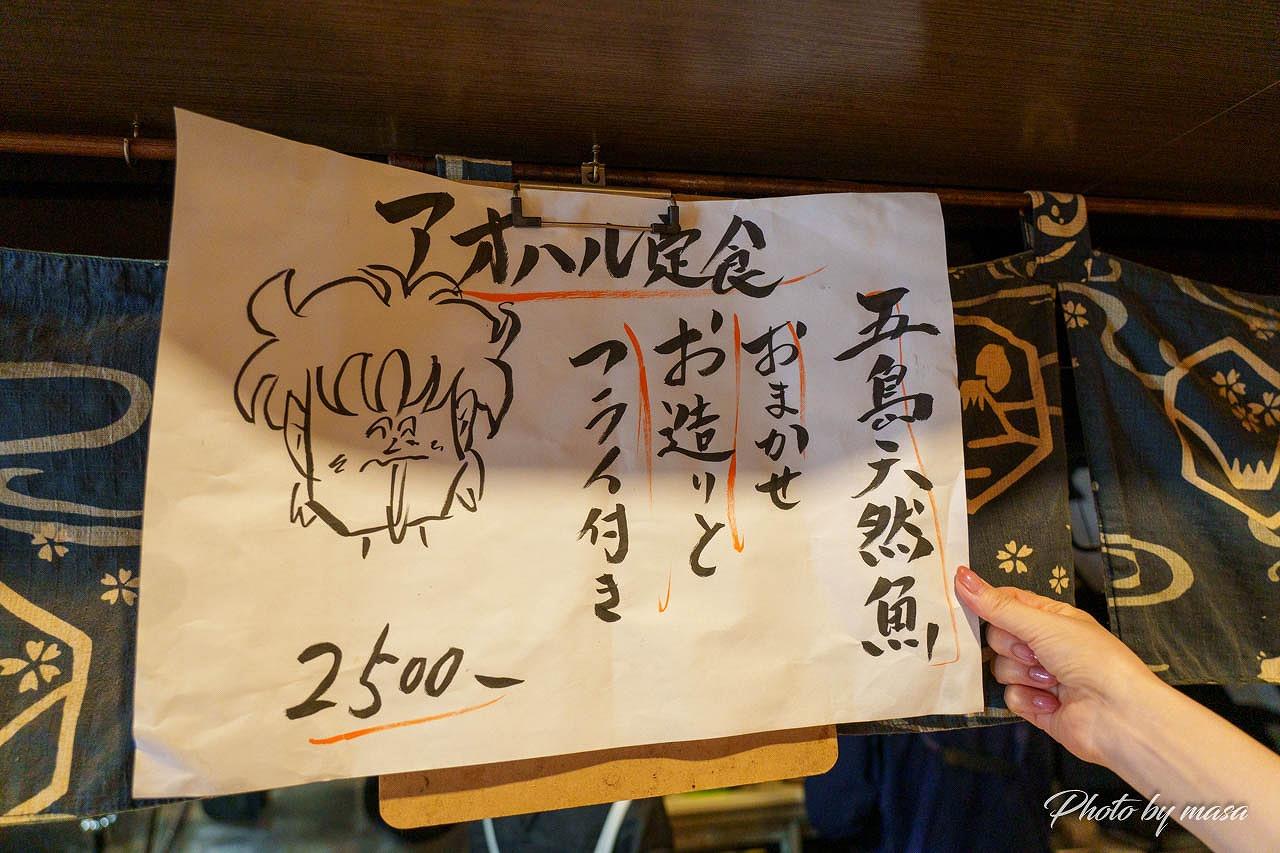 アオハル定食
五島天然魚
おまかせ
お造りと
フライ付き
2500-
Photo by masa